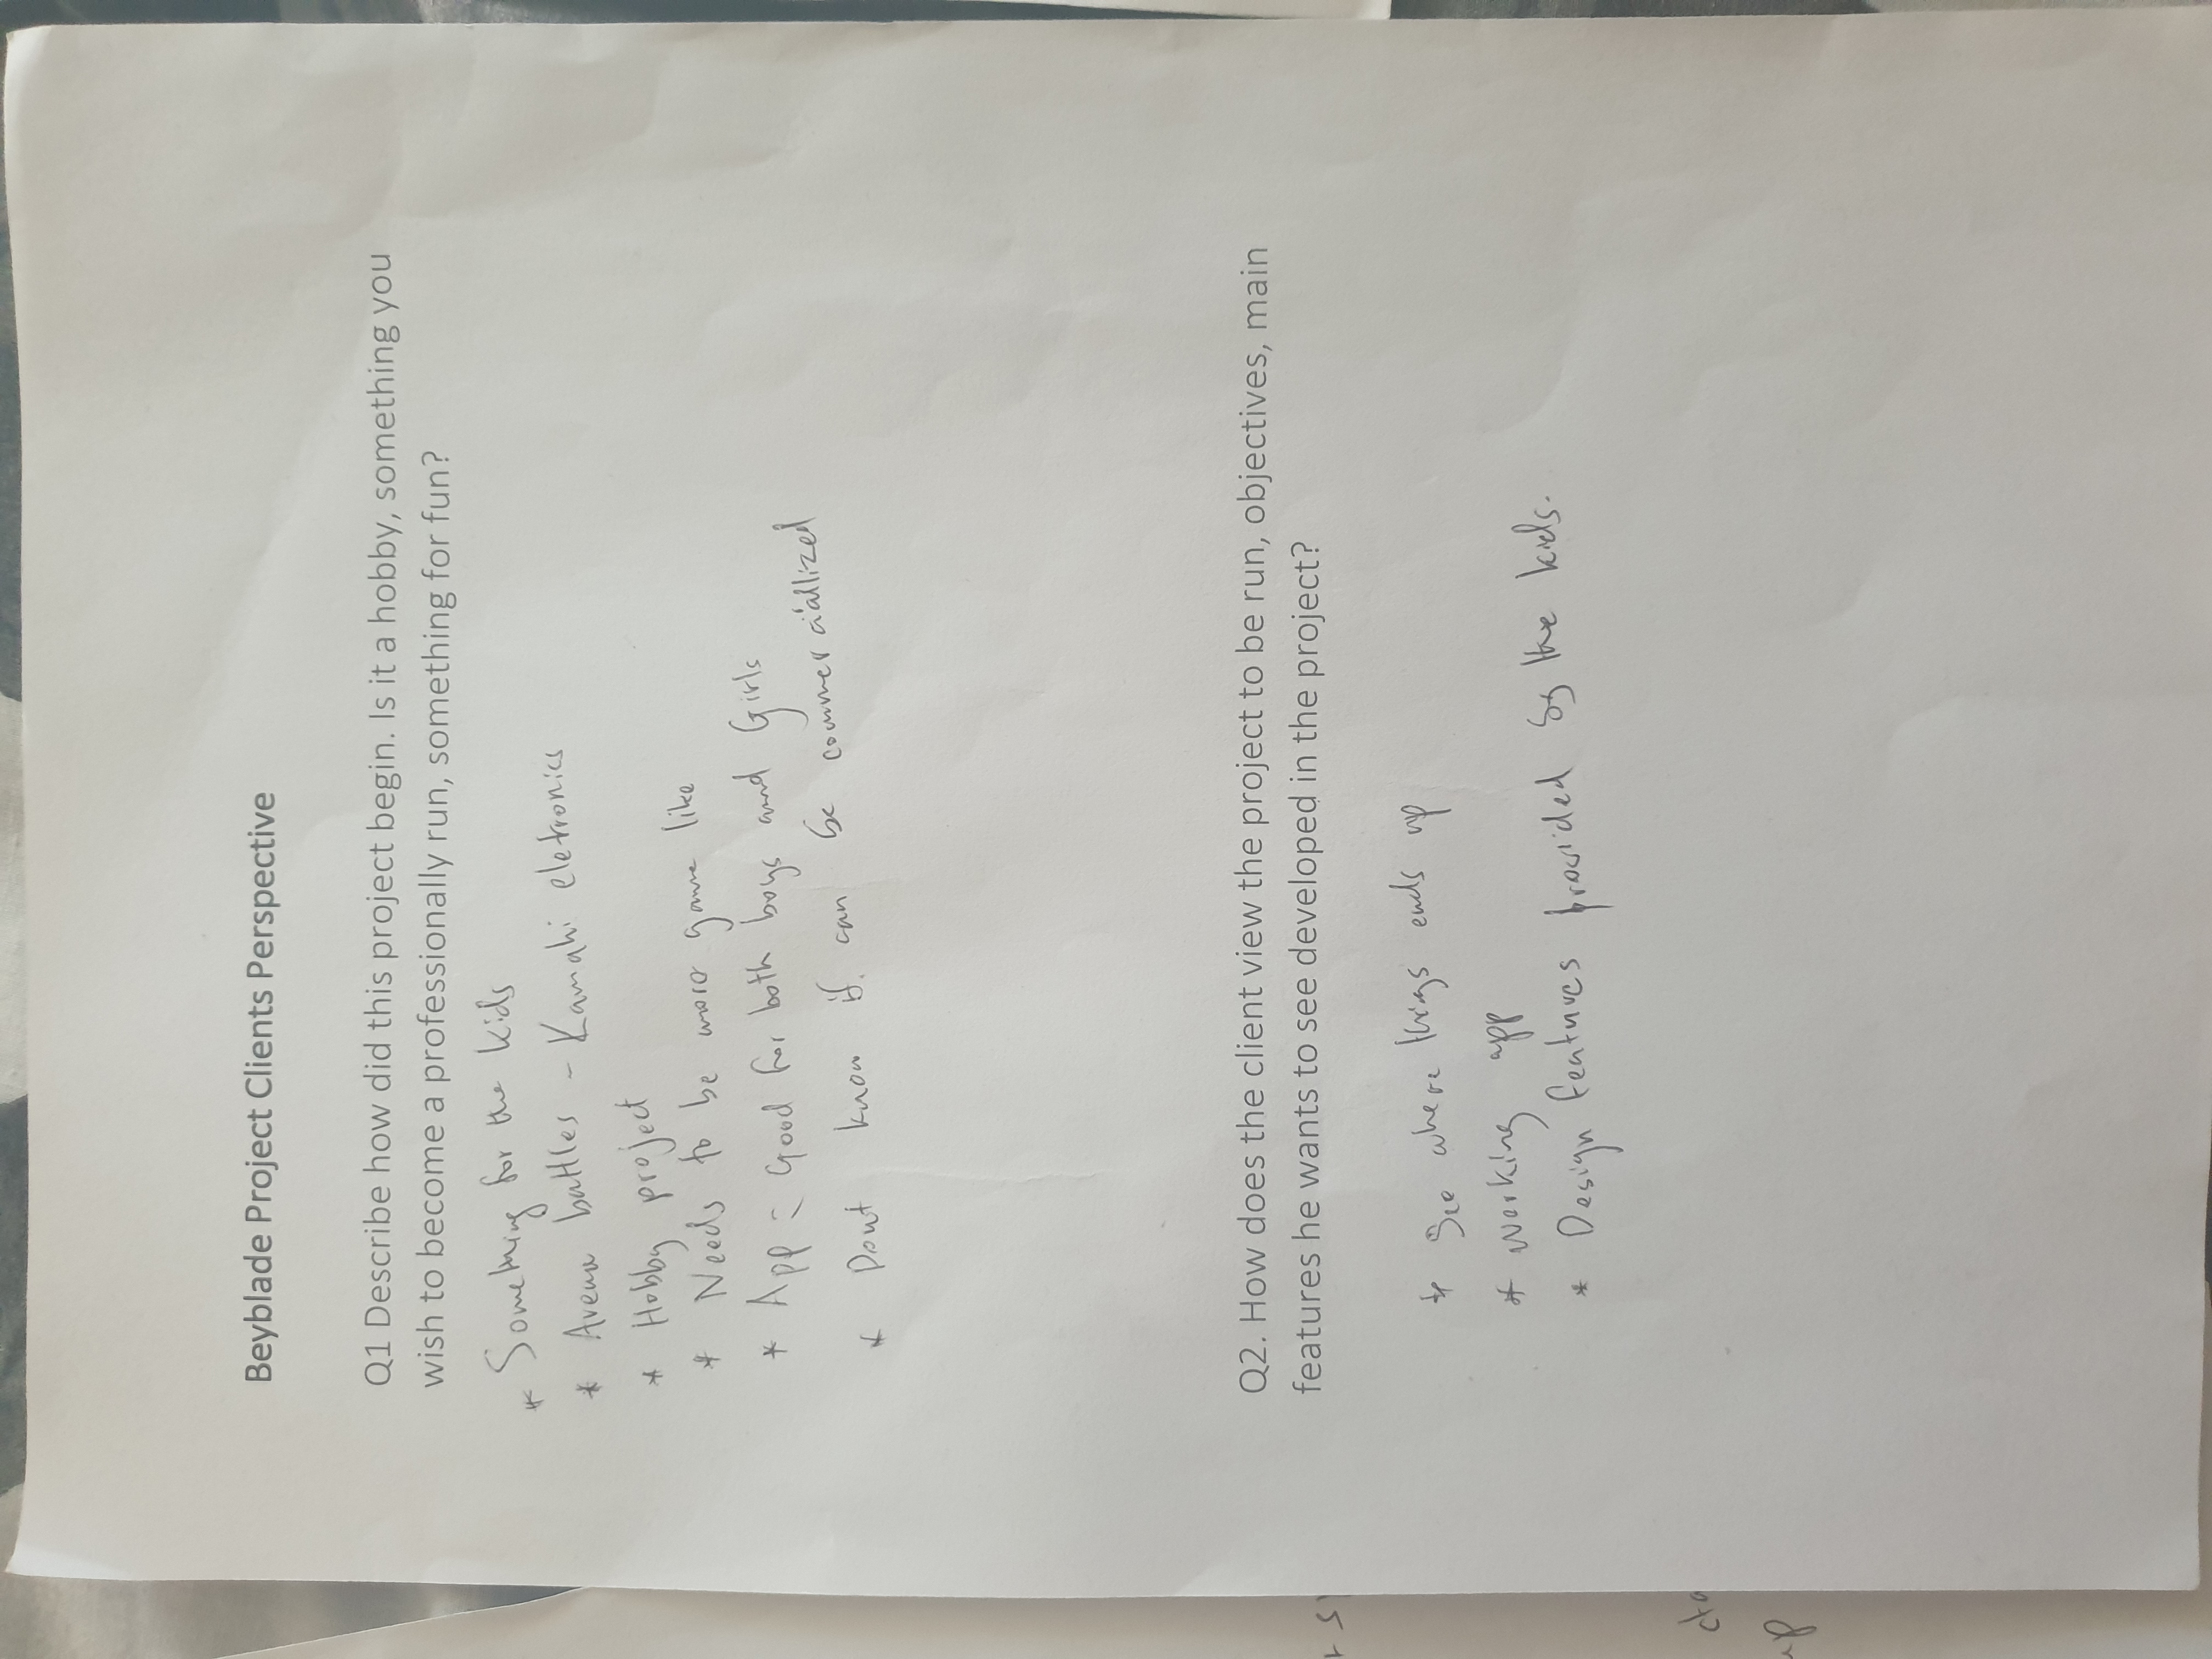 Beyblade Project Clients Perspective
Q1 Describe how did this project begin. Is it a hobby, something you
wish to become a professionally run, something for fun?
* Something for the kids
* Arena battles - Kamahi eletronics
* Hobby project
* Needs to be more game like
* App = Good for both boys and Girls
* Dont know if can be commerciallized
Q2. How does the client view the project to be run, objectives, main
features he wants to see developed in the project?
* See where things ends up
* working app
* Design features provided by the kids.